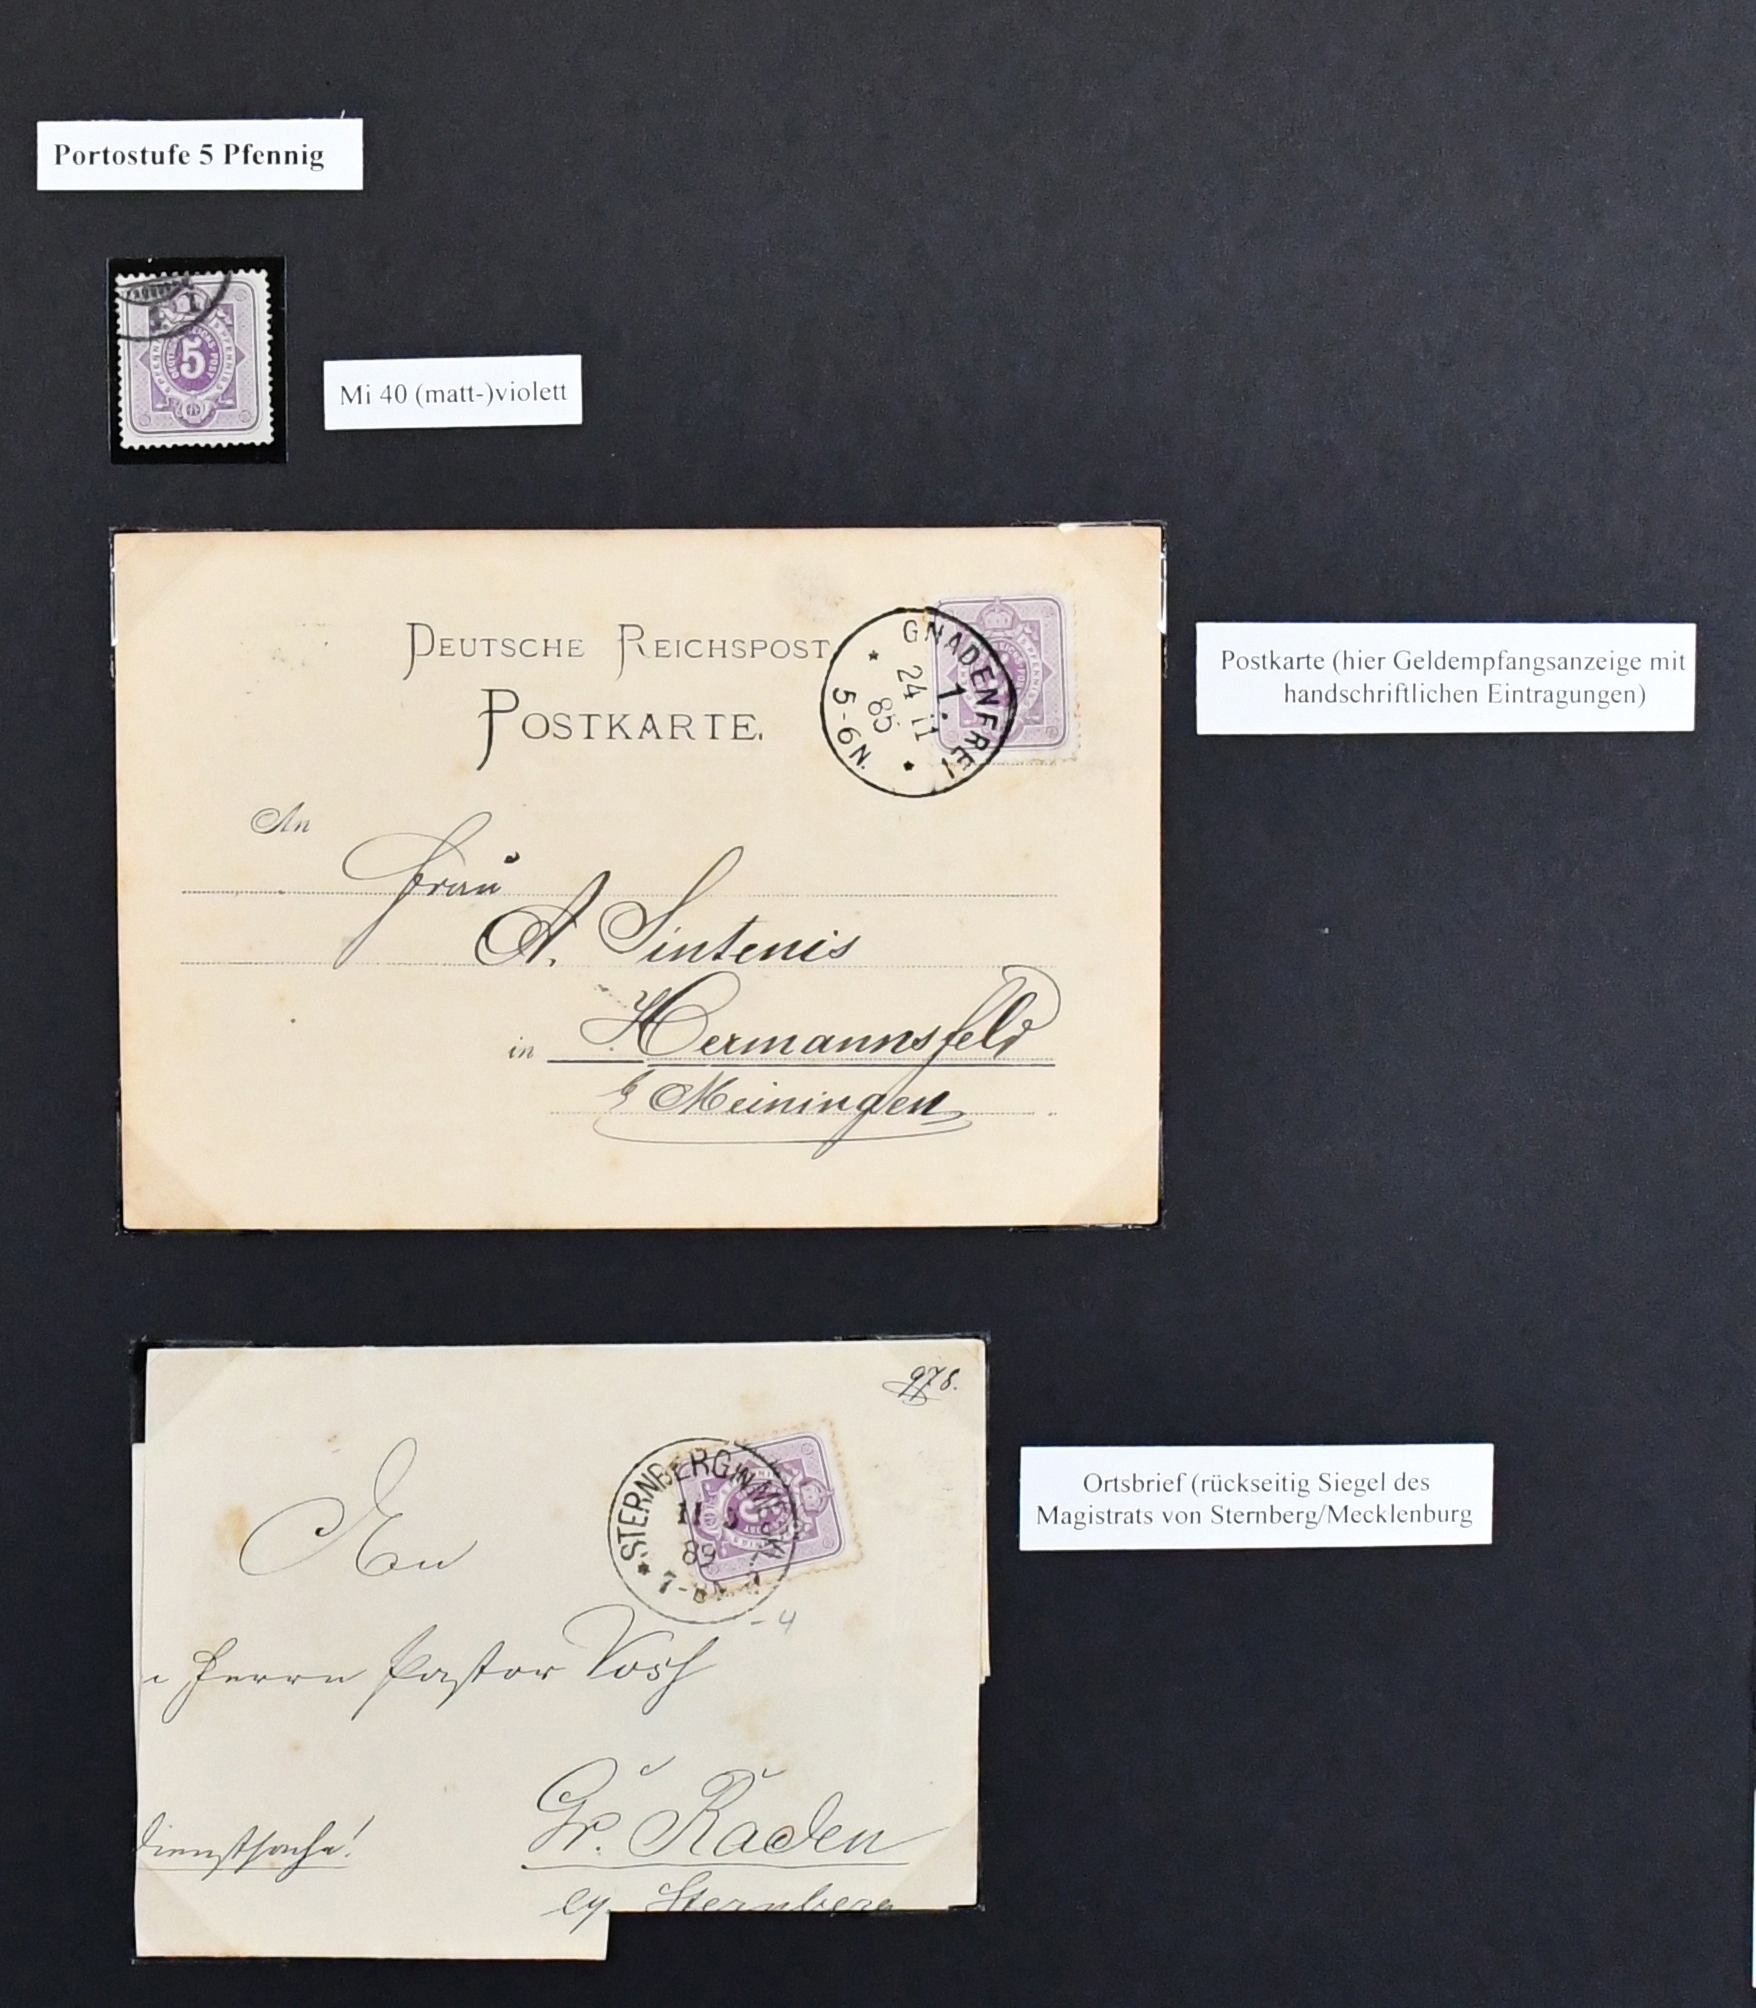 Portostufe 5 Pfennig
5
Mi 40 (matt-)violett
DEUTSCHE REICHSPOST
POSTKARTE.
GNADENFREI
1.
24 11
85
5-6N.
Postkarte (hier Geldempfangsanzeige mit
handschriftlichen Eintragungen)
An
Frau
A. Sintenis
in Hermannsfeld
b Meiningen
978.
STERNBERG IN MECKL.
11 5
89
7-8
-4
An
Herrn Pastor Voss
Gr. Raden
Dienstsache!
by Sternberg
Ortsbrief (rückseitig Siegel des
Magistrats von Sternberg/Mecklenburg